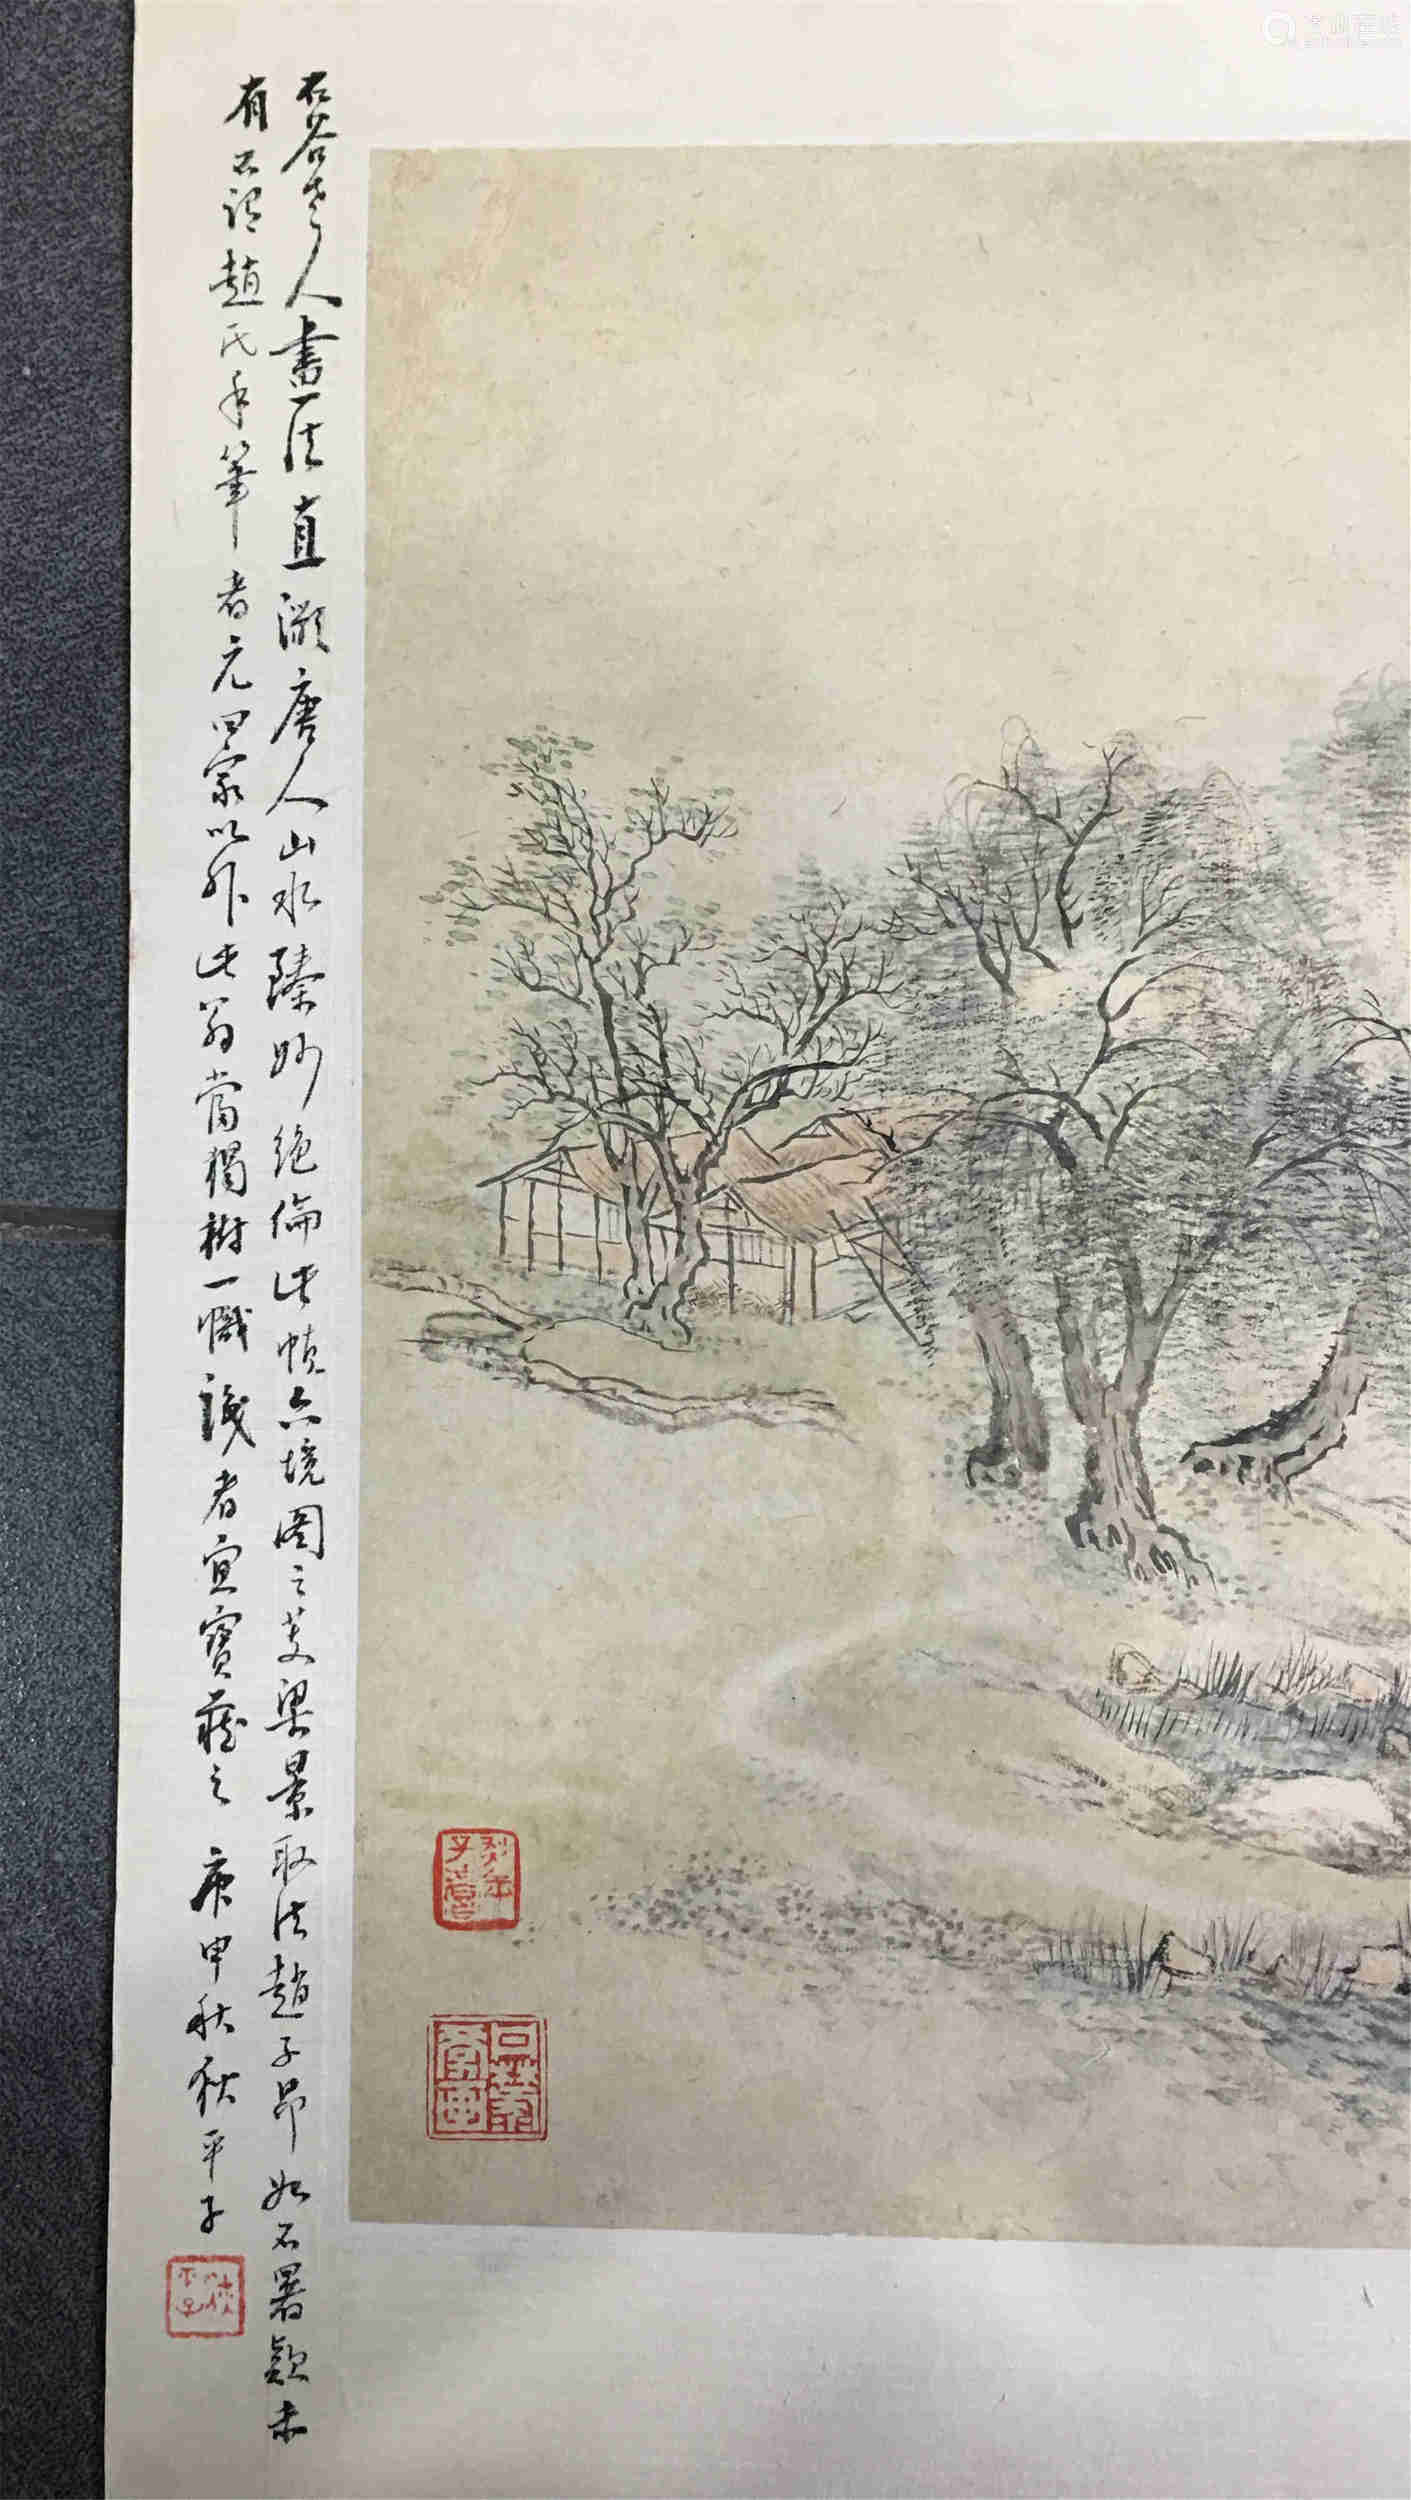 石谷老人畫法直溯唐人山水臻妙絕倫此幀六境圖之芰梁景取法趙子昂如不署款未
有不謂趙氏手筆者元四家以外此翁當獨樹一幟識者宜寶藏之 庚申秋秋平子